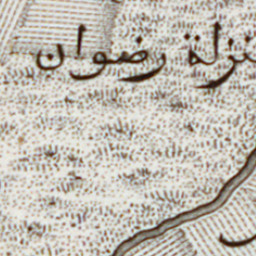 منزلة رضوان